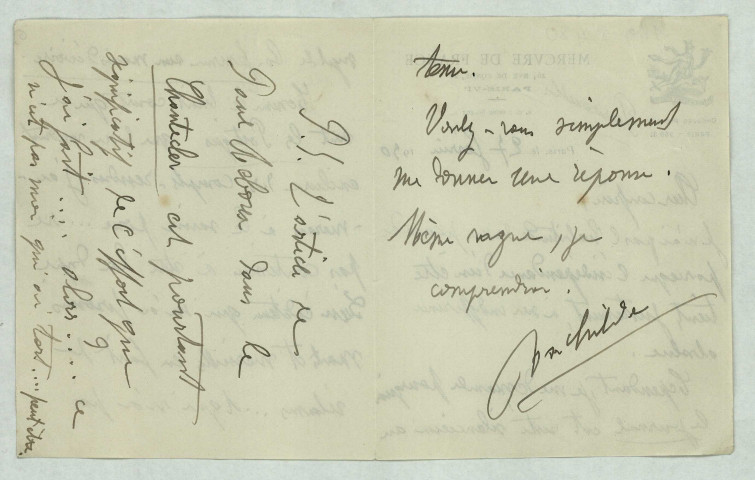 tenu.
Voulez-vous simplement
me donner une réponse.
Même vague, je
comprendrai.
Rachilde
P.S. L'article de
Paul Reboux dans le
Chantecler est pourtant
significatif de l'effort que
j'ai fait.... alors.... ce
n'est pas moi qui ai tort... peut-être.